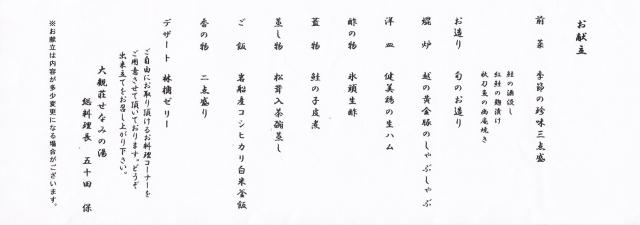 お献立
前菜 季節の珍味三点盛
鮭の酒浸し
紅鮭の麹漬け
秋刀魚の幽庵焼き
お造り 旬のお造り
焜炉 越の黄金豚のしゃぶしゃぶ
洋皿 健美鶏の生ハム
酢の物 氷頭生酢
蓋物 鮭の子皮煮
蒸し物 松茸入茶碗蒸し
ご飯 岩船産コシヒカリ白米釜飯
香の物 二点盛り
デザート 林檎ゼリー
ご自由にお取り頂けるお料理コーナーを
ご用意させて頂いております。どうぞ
出来立てをお召し上がり下さい。
大観荘せなみの湯
総料理長 五十田 保
※お献立は内容が多少変更になる場合がございます。